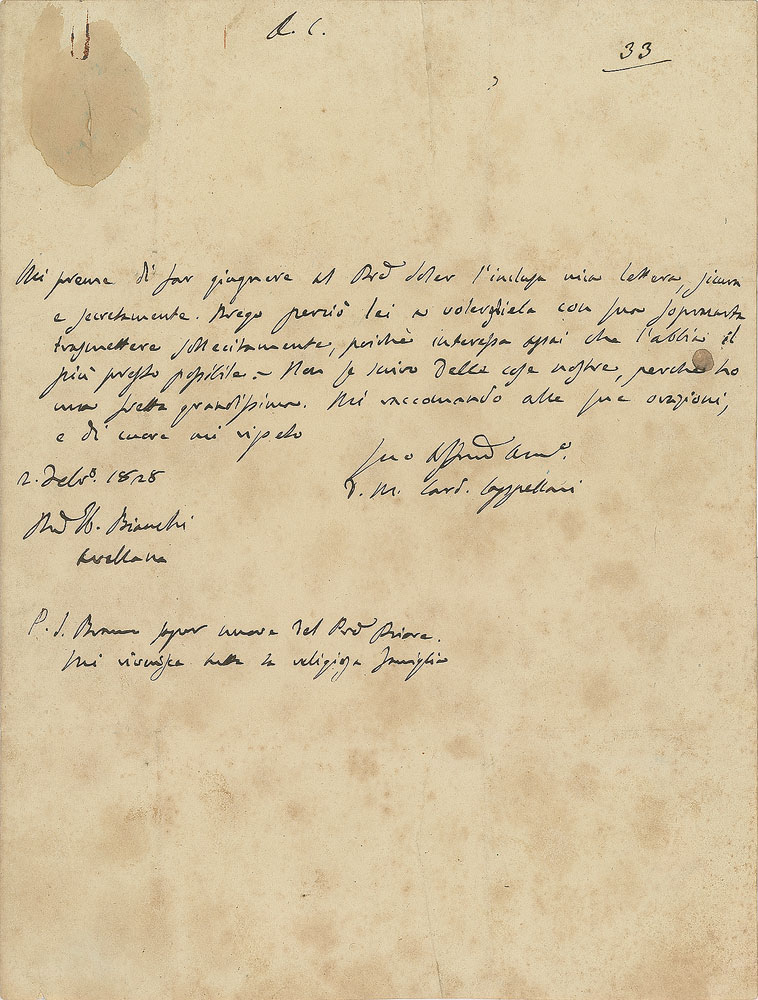 A. C.
33
Mi preme di far giugnere al Pre̅ Soler l'inclusa mia lettera, sicura
e secretamente. Prego perciò lei a volergliela con sua sopracarta
trasmettere sollecitamente, poichè interessa assai che l'abbia il
più presto possibile. - Non le scrivo delle cose nostre, perchè ho
una fretta grandissima. Mi raccomando alle sue orazioni,
e di cuore mi ripeto
Suo Affmo̅ Amo.
D. M. Card. Cappellari
2. Febro. 1828
Bianchi
Avellana
P. S. Bramo saper nuove del Pre̅ Priore.
Mi riverisca tutta la religiosa famiglia